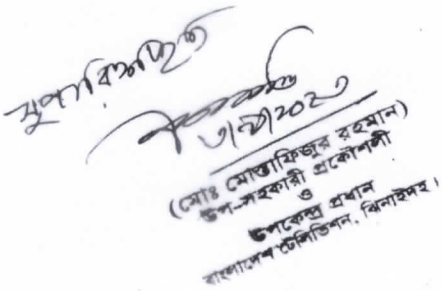 সুপারিশকৃত
(মোঃ মোস্তাফিজুর রহমান)
উপ-সহকারী প্রকৌশলী
ও
উপকেন্দ্র প্রধান
বাংলাদেশ টেলিভিশন, ঝিনাইদহ।